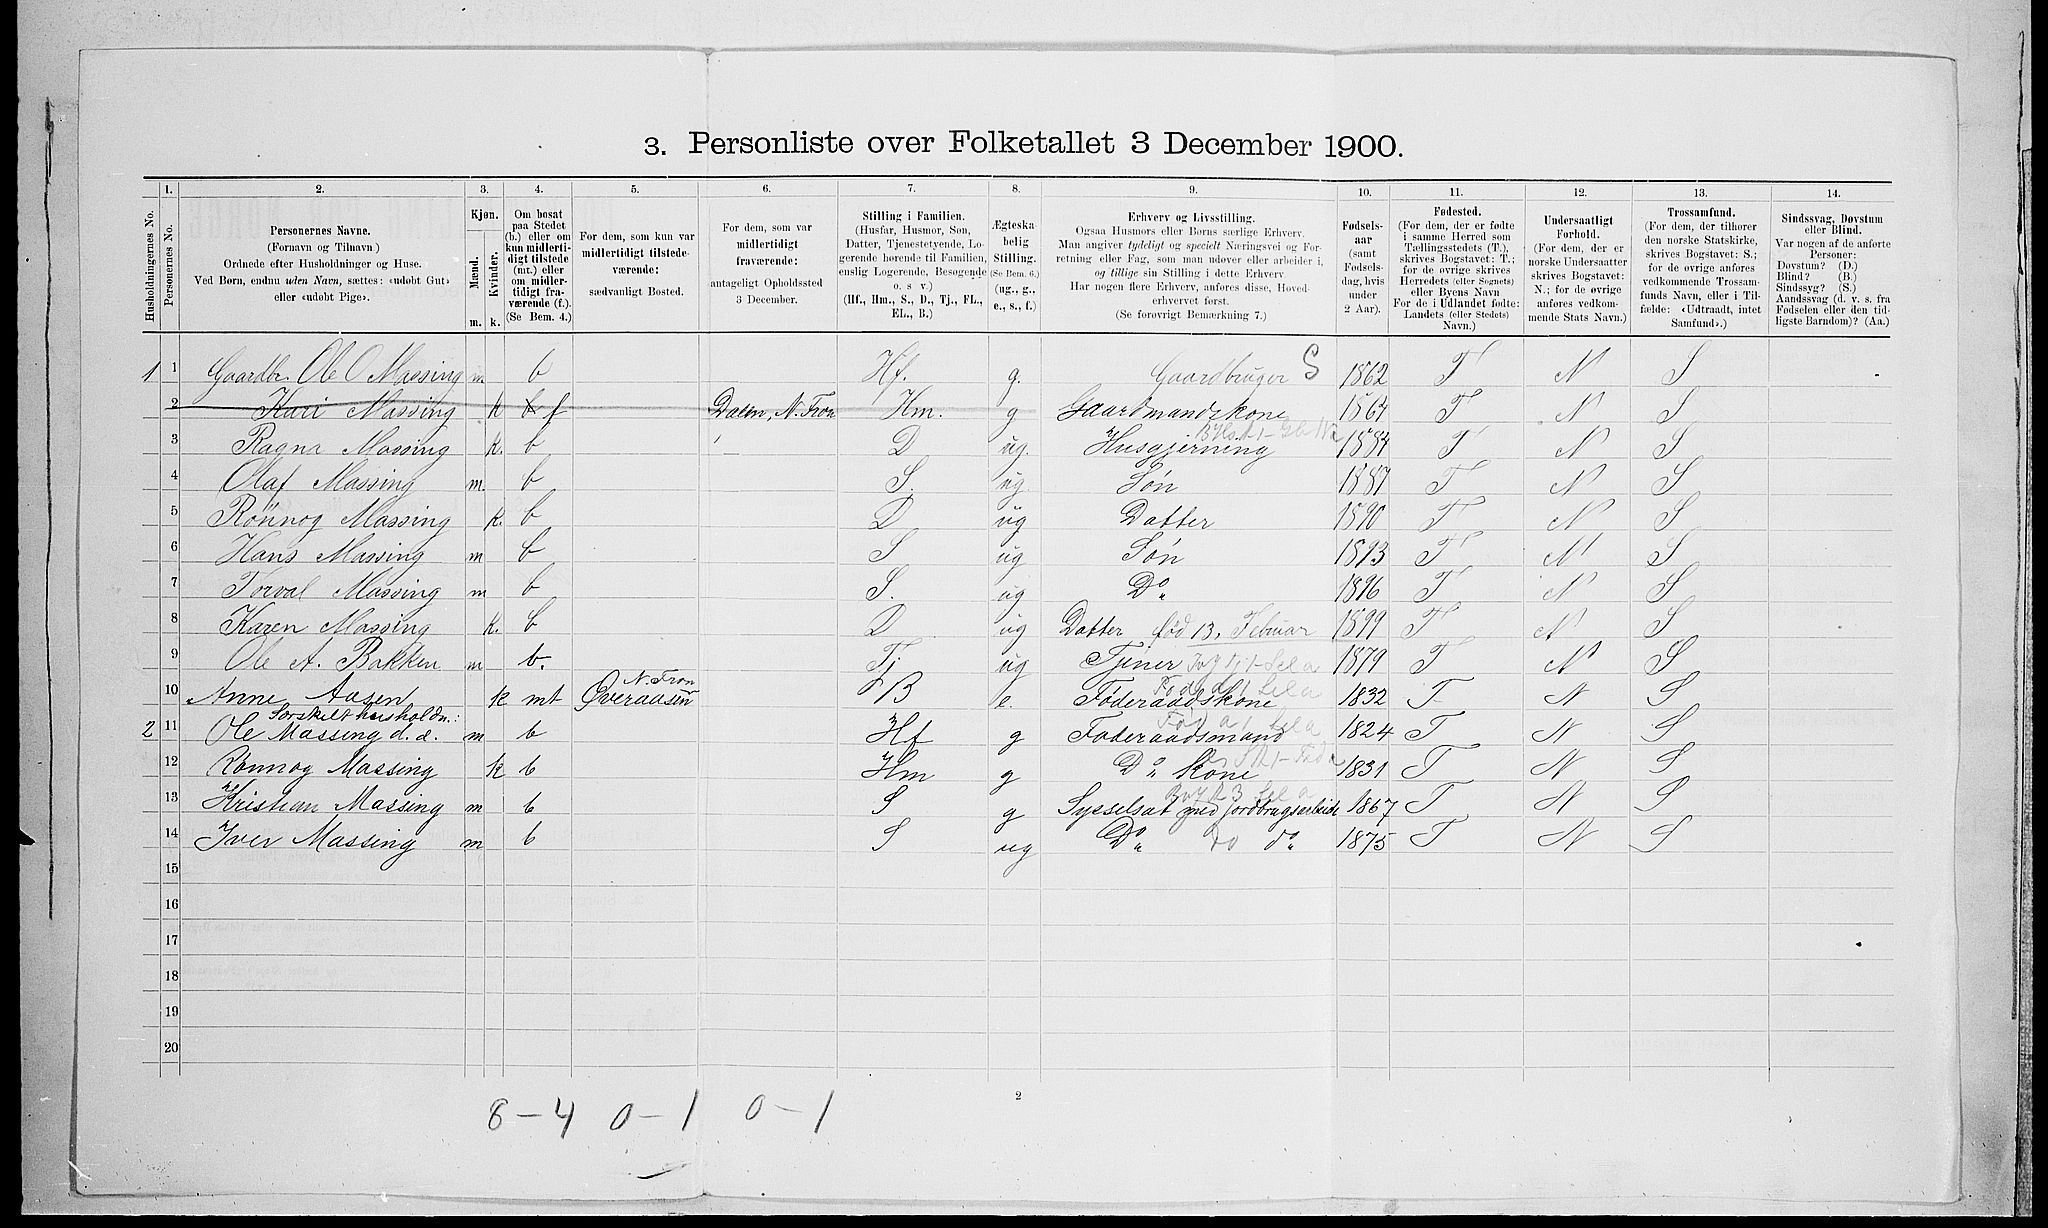 3. Personliste over Folketallet 3 December 1900.
Husholdningernes No.
1. Personernes No.
2. Personernes Navne. (Fornavn og Tilnavn.) Ordnede efter Husholdninger og Huse. Ved Børn, endnu uden Navn, sættes: «udøbt Gut» eller «udøbt Pige».
3. Kjøn. Mænd. m. Kvinder. k.
4. Om bosat paa Stedet (b.) eller om kun midlertidigt tilstede (mt.) eller om midlertidigt fraværende (f.). (Se Bem. 4.)
5. For dem, som kun var midlertidigt tilstedeværende: sædvanligt Bosted.
6. For dem, som var midlertidigt fraværende: antageligt Opholdssted 3 December.
7. Stilling i Familien. (Husfar, Husmor, Søn, Datter, Tjenestetyende, Logerende hørende til Familien, enslig Logerende, Besøgende o. s v.) (Hf., Hm., S., D., Tj., FL., EL., B.)
8. Ægteskabelig Stilling. (Se Bem. 6.) (ug., g., e., s., f.)
9. Erhverv og Livsstilling. Ogsaa Husmors eller Børns særlige Erhverv. Man angiver tydeligt og specielt Næringsvei og Forretning eller Fag, som man udøver eller arbeider i, og tillige sin Stilling i dette Erhverv. Har nogen flere Erhverv, anføres disse, Hovederhvervet først. (Se forøvrigt Bemærkning 7.)
10. Fødselsaar (samt Fødselsdag, hvis under 2 Aar).
11. Fødested. (For dem, der er fødte i samme Herred som Tællingsstedets (T.), skrives Bogstavet: T.; for de øvrige skrives Herredets (eller Sognets) eller Byens Navn For de i Udlandet fødte: Landets (eller Stedets) Navn.)
12. Undersaatligt Forhold. (For dem, der er norske Undersaatter skrives Bogstavet: N.; for de øvrige anføres vedkommende Stats Navn.)
13. Trossamfund. (For dem, der tilhører den norske Statskirke, skrives Bogstavet: S.; for de øvrige anføres vedkommende Trossamfunds Navn, eller i Tilfælde: «Udtraadt, intet Samfund».)
14. Sindssvag, Døvstum eller Blind. Var nogen af de anførte Personer: Døvstum? (D.) Blind? (B.) Sindssyg? (S.) Aandssvag (d. v. s. fra Fødselen eller den tidligste Barndom)? (Aa.)
1 1 Gaardbr. Ole O Massing m b Hf. g. Gaardbruger S 1862 T N S
2 Kari Massing k b f Dalen, N. Fron Hm. g Gaardmandskone 1864 T N S
3 Ragna Massing k. b D ug. Husgjerning 1884 T N S
4 Olaf Massing m. b S. ug. Søn 1887 T N S
5 Rønnog Massing k. b D ug Datter 1890 T N S
6 Hans Massing m b S ug Søn 1893 T N S
7 Torval Massing m b S. ug Do 1896 T N S
8 Karen Massing k. b D ug Datter fød 13. Februar 1899 T N S
9 Ole A. Bakken m b. Tj ug Tjener 1879 T N S
10 Anne Aasen k mt Øveraasen N. Fron B e. Føderaadskone 1832 T N S
Særskilt husholdn.:
2 11 Ole Massing d. æ. m b Hf g Føderaadsmand 1824 T N S
12 Rønnog Massing k b Hm g Do kone 1831 T N S
13 Kristian Massing m b S g Sysselsat med jordbrugsarbeide 1867 T N S
14 Iver Massing m b S ug Do Do do 1875 T N S
15
16
17
18
19
20
8 – 4 0 – 1 0 – 1
2